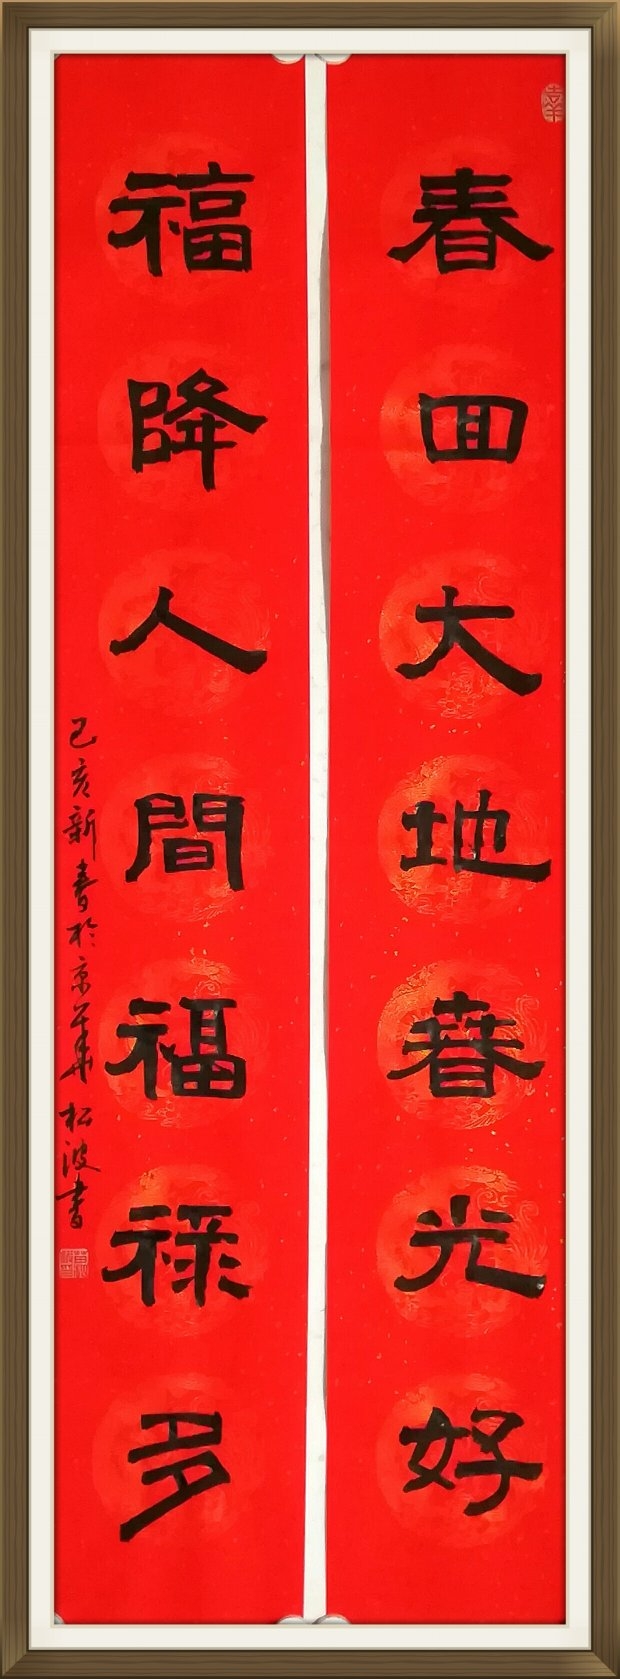 春回大地春光好
福降人間福祿多
己亥新春於京華松波書